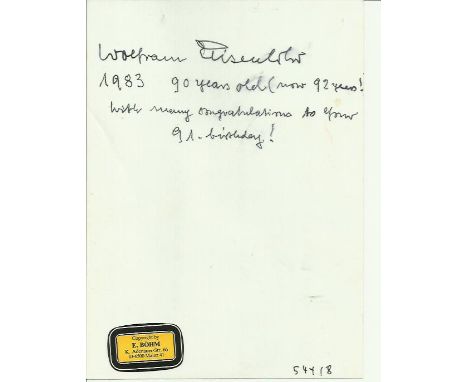 Wolfram Eisenlohr
1983 90 years old (now 92 years!
With many congratulations to your
91-birthday!
Copyright by
E. BÖHM
54Y/8